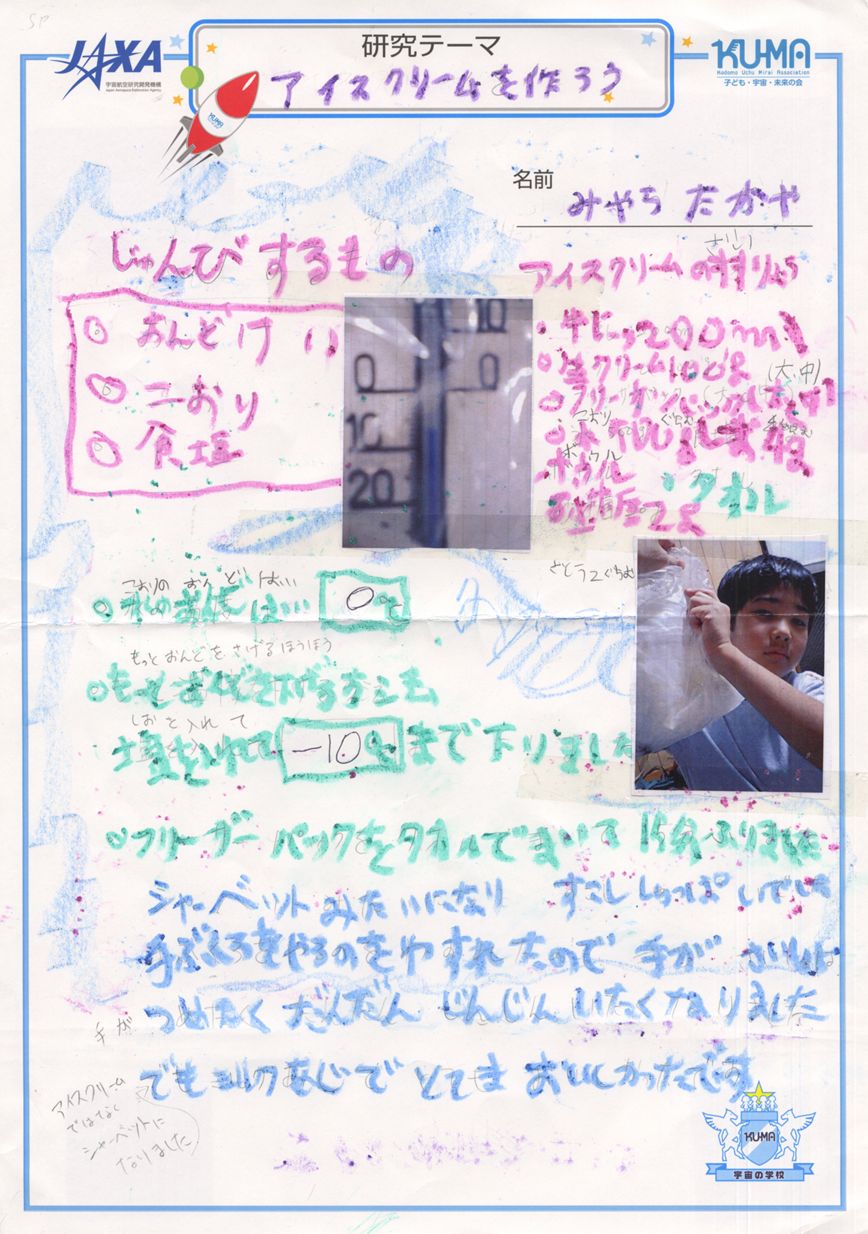 JAXA
宇宙航空研究開発機構
Japan Aerospace Exploration Agency
研究テーマ
アイスクリームを作ろう
KUMA
Kodomo Uchu Mirai Association
子ども・宇宙・未来の会
KUMA
名前
みやち たかや
じゅんびするもの
おんどけい
こおり
食塩
10
0 0
10
20
アイスクリームの
牛にゅう200ml
生クリーム
(大、中)
こおり
ボウル
ボウル
タオル
こおりの おんどは…
氷の温度は… 0℃
もっと おんどを さげるほうほう
もっとおんどを下げる
しおを入れて
塩を入れて -10℃まで下りました
フリーザーパックをタオルでまいて 15分ふりました
シャーベットみたいになり すこししょっぱいでした
手ぶくろをやるのをわすれたので 手が さいしょは
つめたく だんだん じんじん いたくなりました
手が
でもミルクあじで とても おいしかったです
アイスクリーム
ではなく
シャーベットに
なりました
KUMA
宇宙の学校